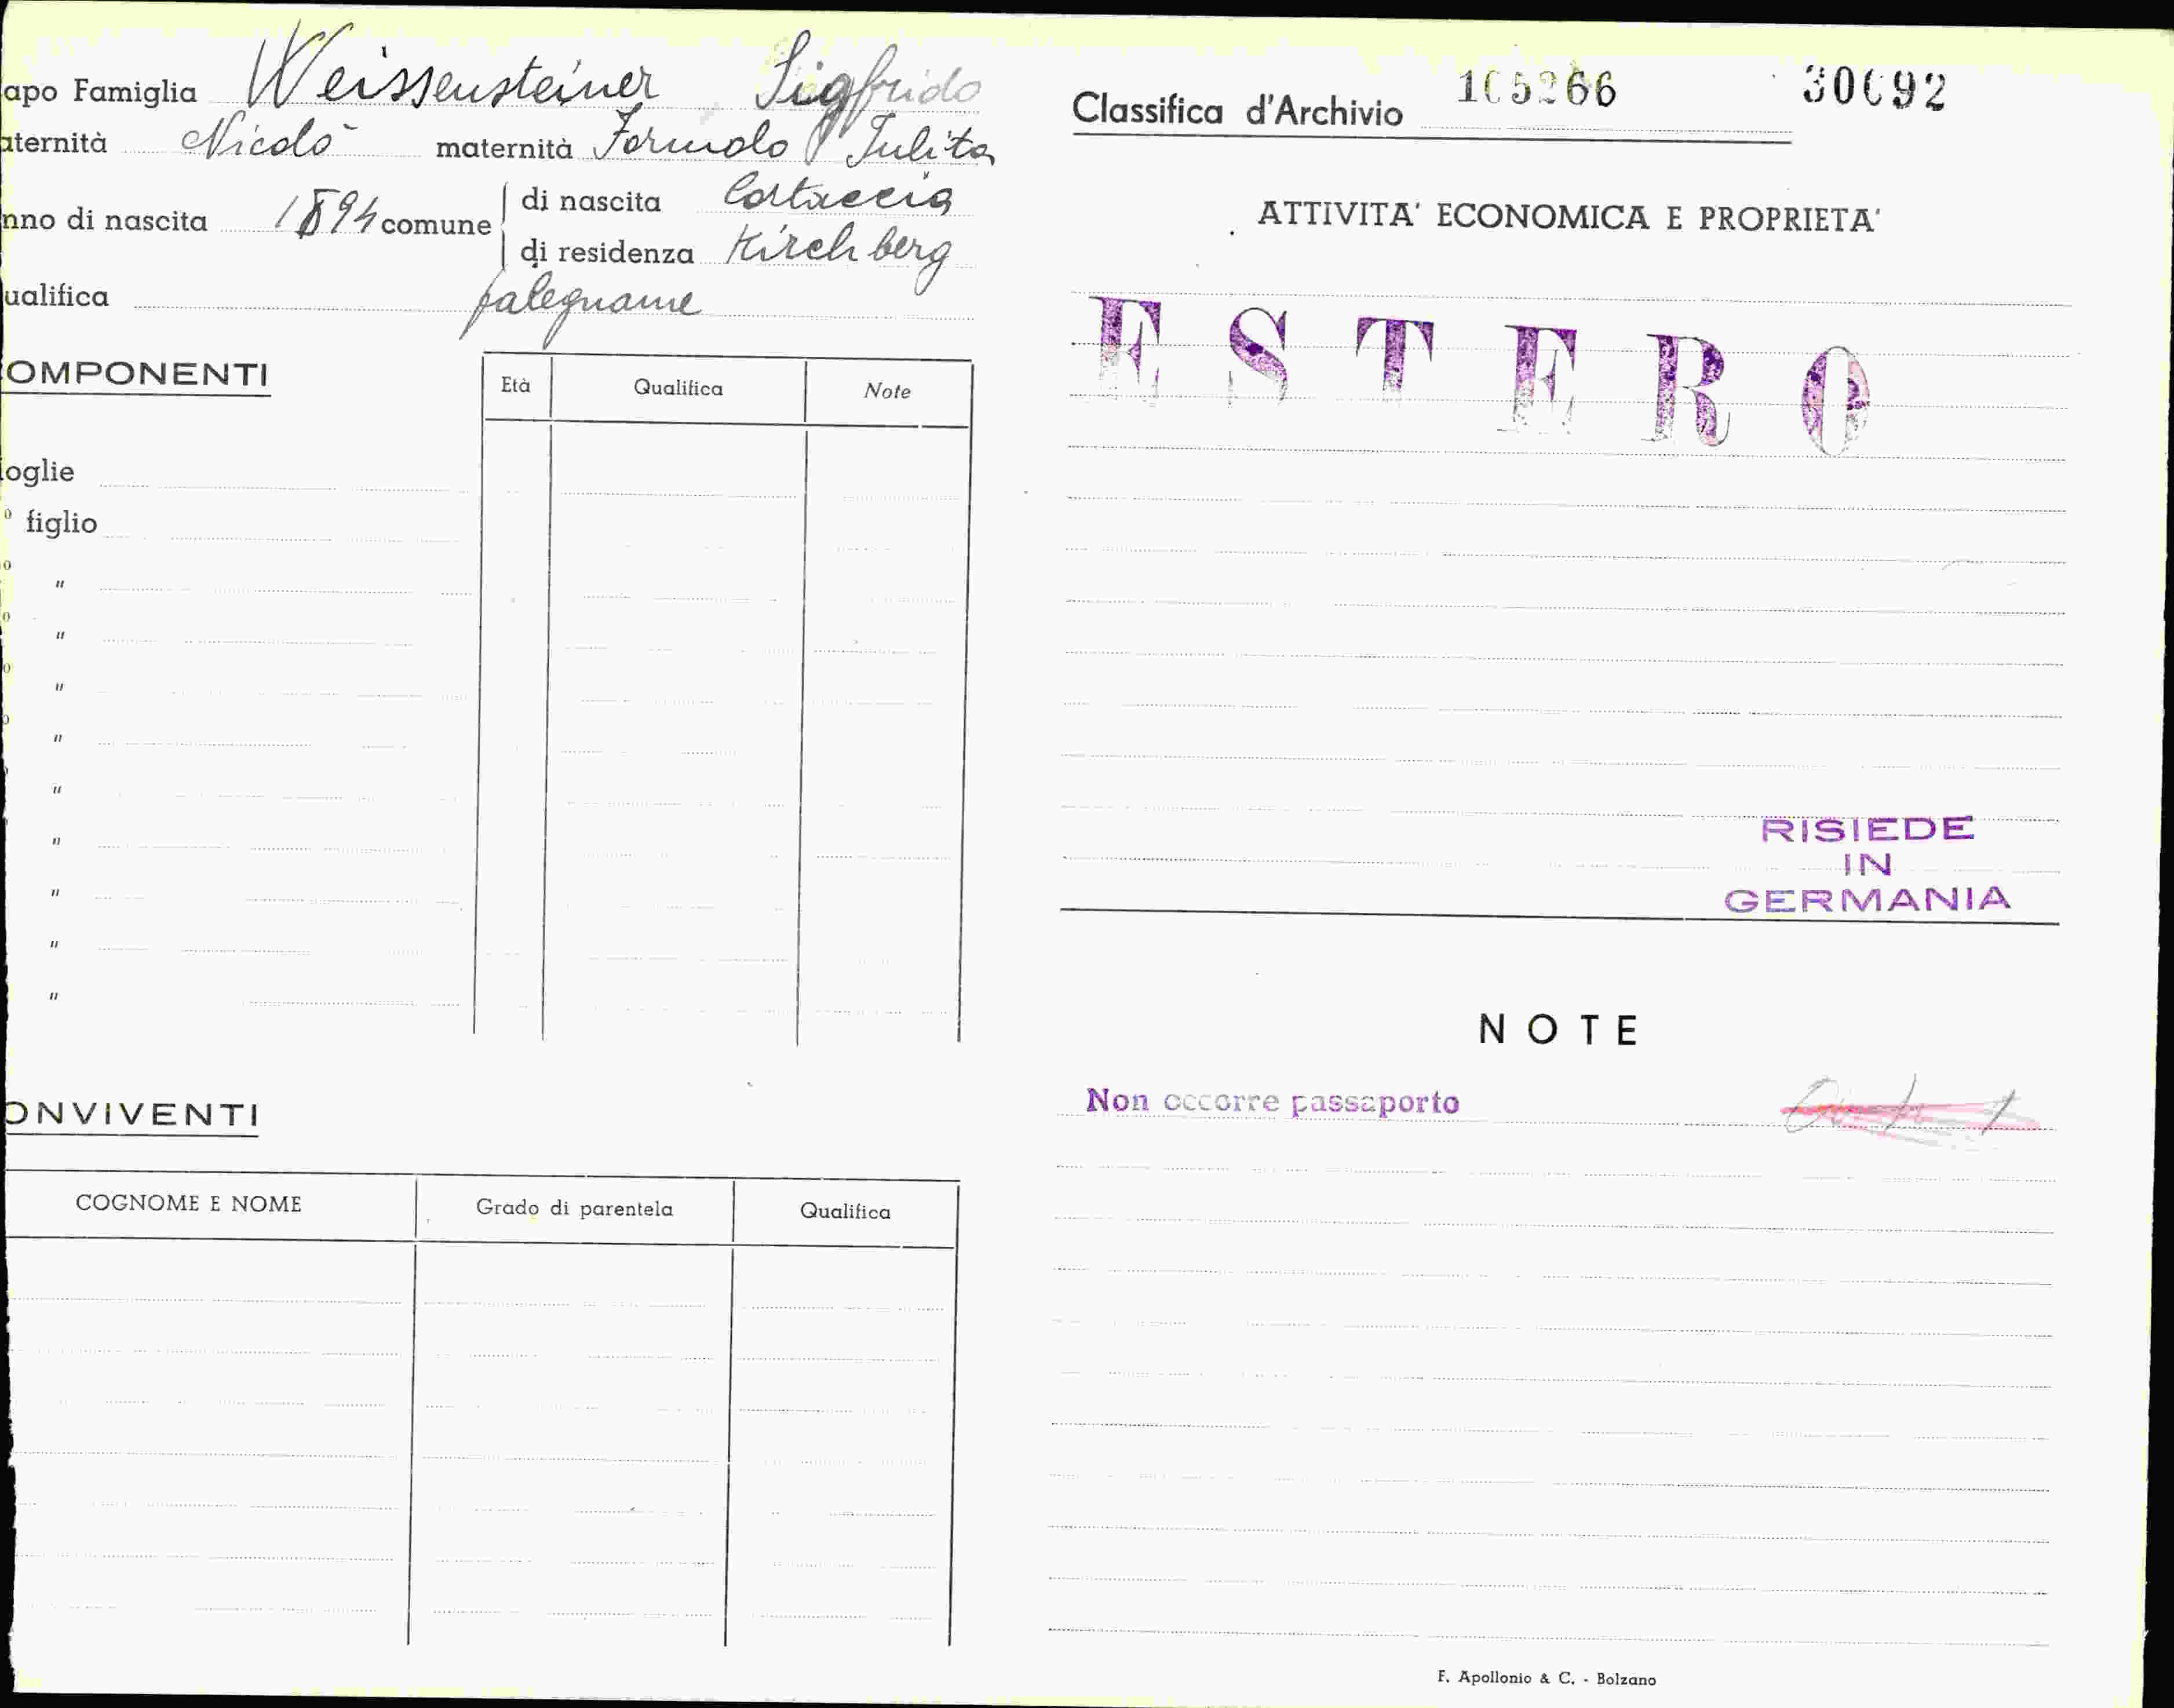 apo Famiglia Weissensteiner Sigfrido
aternità Nicolò maternità Formolo Julita
nno di nascita 1894 comune di nascita Cortaccia
di residenza Kirchberg
ualifica falegname
OMPONENTI
Età Qualifica Note
oglie
o figlio
o "
o "
o "
o "
"
"
"
"
"
ONVIVENTI
COGNOME E NOME Grado di parentela Qualifica
Classifica d'Archivio 105266 30692
ATTIVITA' ECONOMICA E PROPRIETA'
ESTERO
RISIEDE
IN
GERMANIA
NOTE
Non occorre passaporto
F. Apollonio & C. - Bolzano